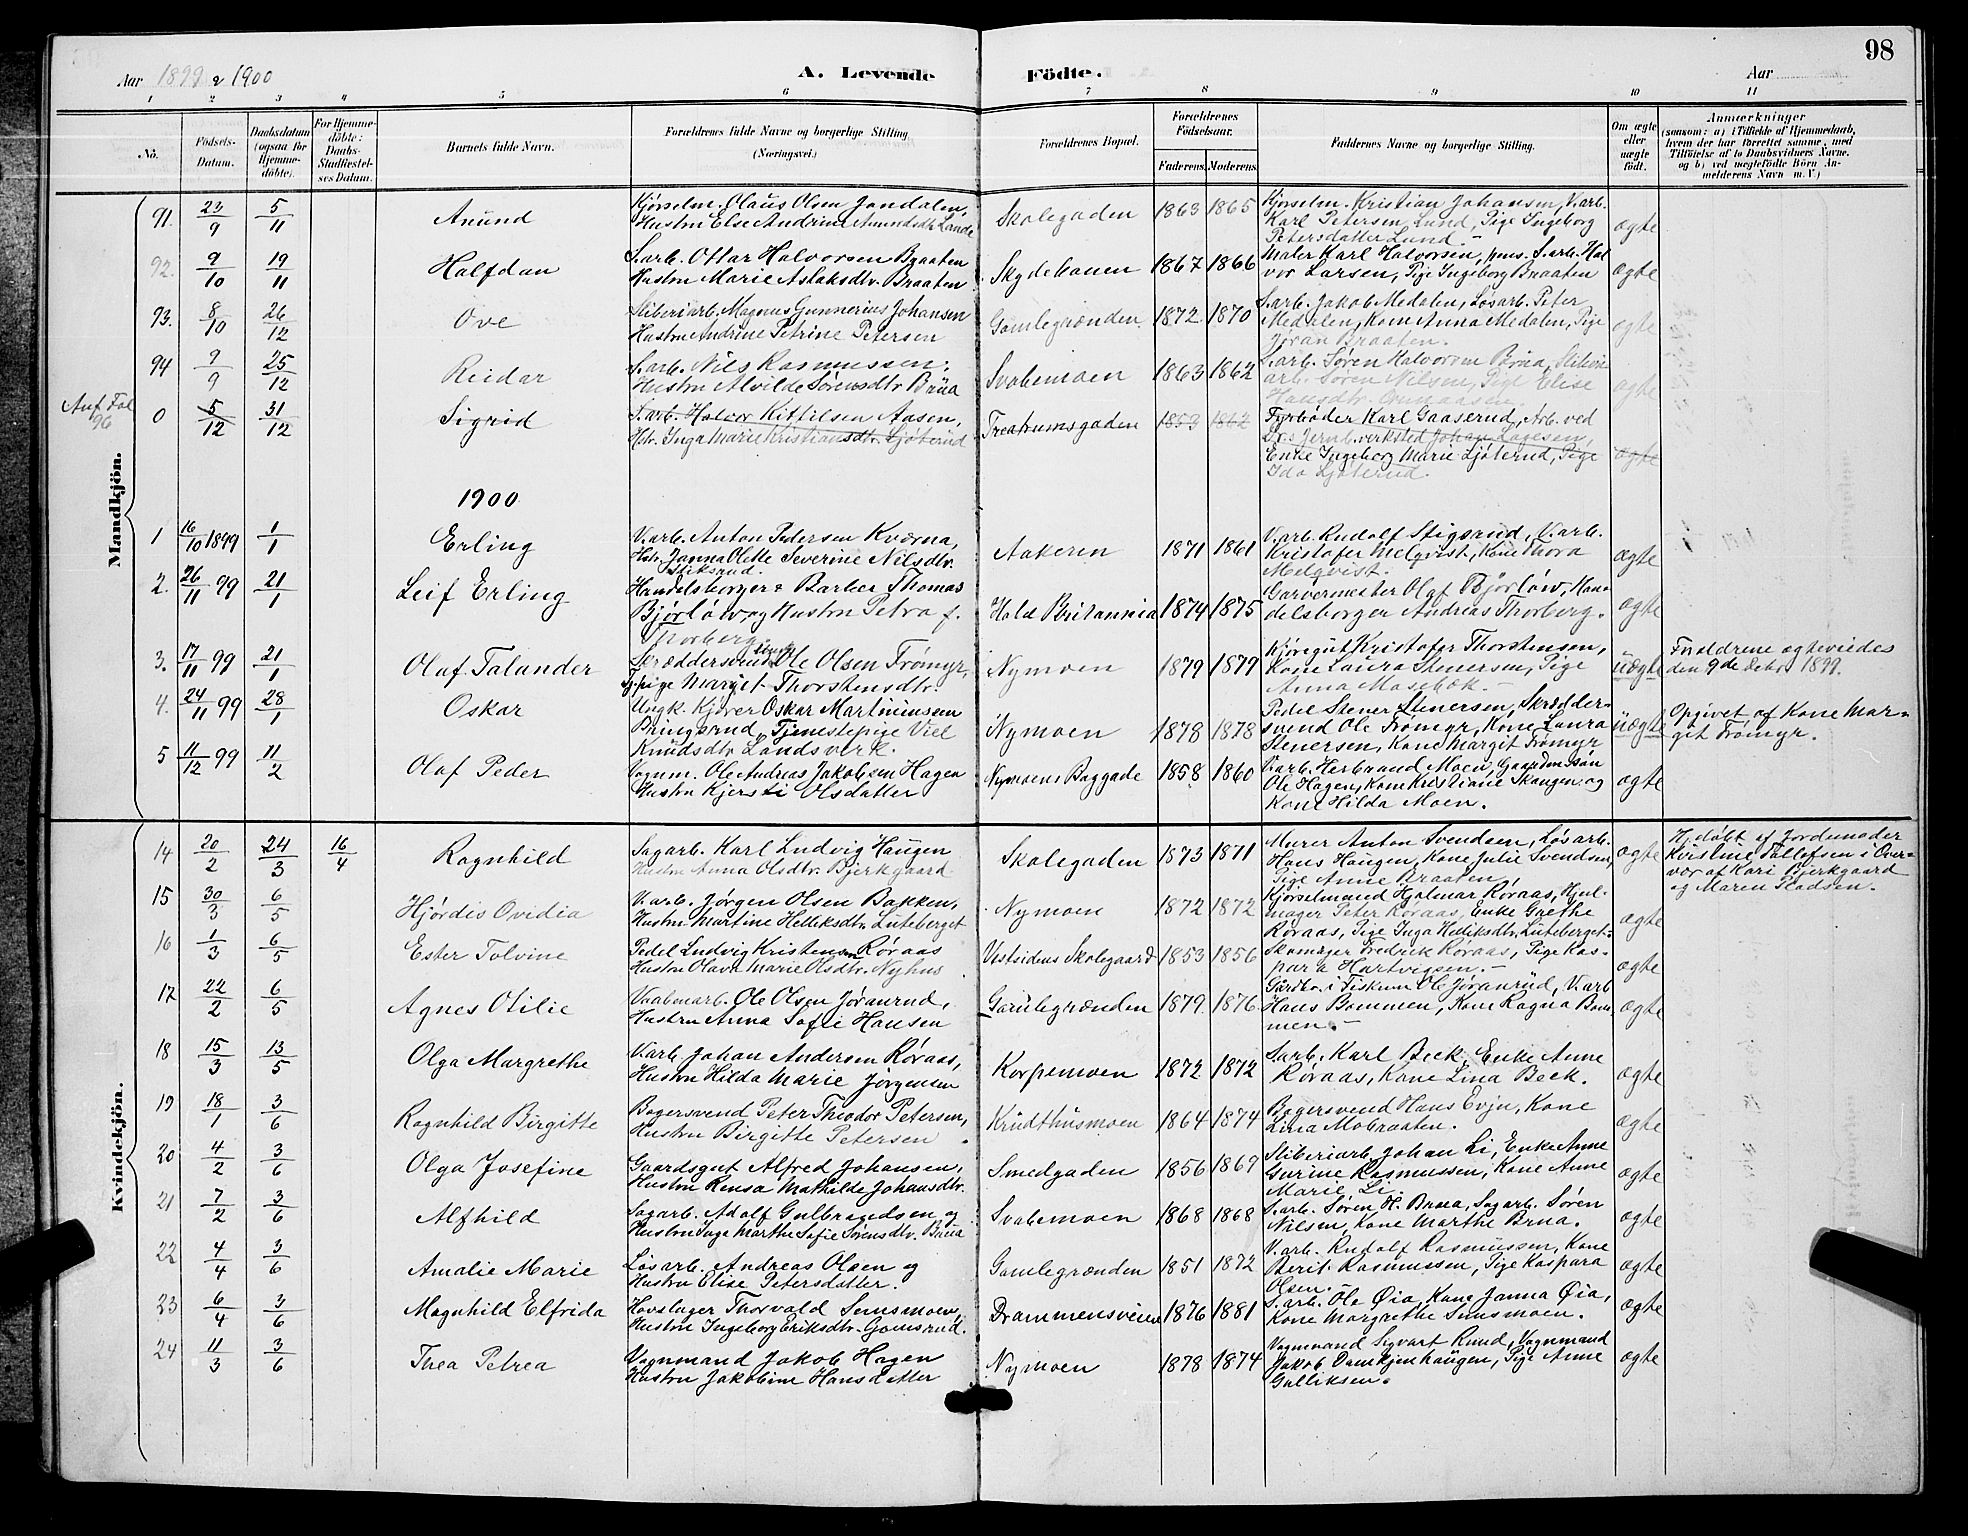 98
Aar 1899 & 1900 A. Levende Födte. Aar
1 2 3 4 5 6 7 8 9 10 11
No. Födsels-Datum. Daabsdatum (ogsaa for Hjemmedöbte). For Hjemmedöbte: Daabs-Stadfæstelses Datum. Barnets fulde Navn. Forældrenes fulde Navne og borgerlige Stilling (Næringsvei.) Forældrenes Bopæl. Forældrenes Födselsaar. Faderens. Moderens. Faddernes Navne og borgerlige Stilling. Om ægte eller uægte födt. Anmærkninger (saasom: a) i Tilfælde af Hjemmedaab, hvem der har forrettet samme, med Tilföielse af to Daabsvidners Navne. og b) ved uægtefödte Börn Anmelderens Navn m. V.)
Mandkjön.
91. 23/9 5/11 Anund Kjørselm. Olaus Olsen Jondalen, Hustru Else Andrine Amundsdtr. Lande Skolegaden 1863 1865 Kjørselm. Kristian Johansen, V.arb. Karl Petersen Lund, Pige Ingeborg Petersdatter Lund. ægte
92. 9/10 19/11 Halfdan S.arb. Ottar Halvorsen Braaten Hustru Marie Aslaksdtr. Braaten Skydebanen 1867 1866 Maler Karl Halvorsen, pens. S.arb. Halvor Larsen, Pige Ingeborg Braaten ægte
93. 8/10 26/12 Ove Sliberiarb. Magnus Gunnerius Johansen Hustru Andrine Petrine Petersen Gamlegrænden 1872 1870 S.arb. Jakob Medalen, Løsarb. Peter Medalen, Kone Anna Medalen, Pige Jøran Braaten. ægte
94 9/9 25/12 Reidar S.arb. Nils Rasmussen, Hustru Alvilde Sørensdtr Brua Svabemoen 1863 1862 S.arb. Søren Halvorsen Brua, Sliberiarb. Søren Nilsen, Pige Elise Hansdtr. ægte
Anf. Fol 96 0 5/12 31/12 Sigrid S.arb. Halvor Kittilsen Aasen, Hstr. Inga Marie Kristiansdtr. Ljøterud Treatrumsgaden 1853 1862 Fyrbøder Karl Gaaserud, Arb. ved Jernb.verksted Johan Lagesen, Enke Ingeborg Marie Ljøterud, Pige Ida Ljøterud. ægte
1900
1 16/10 1899 1/1 Erling V.arb. Anton Pedersen Kværna, Hstr. Janna Olette Severine Nilsdtr. Stiksrud. Aakeren 1871 1861 V.arb. Rudolf Stigsrud, V.arb. Kristofer Melqvist, Kone Thora Melqvist. ægte
2. 26/11 99 21/1 Leif Erling Handelsborger & Barber Thomas Bjørløw og Hustru Petra f. Thorberg Hotel Britannia 1874 1875 Garvermester Olaf Bjørløw, Handelsborger Andreas Thorberg. ægte
3. 17/11 99 21/1 Olaf Talander Skræddersvend Ole Olsen Frømyr, Tj.pige Margit Thorstensdtr. Nymoen 1879 1879 Kjøregut Kristofer Thorstensen, Kone Laura Stenersen, Pige Anna Masebæk. uægte Forældrene ægteviedes den 9de Debr 1899.
4. 24/11 99 28/1 Oskar Ungk. Kjører Oskar Martiniusen Bringsrud, Tjenestepige Viel Knudsdtr. Landsverk. Nymoen 1878 1878 Pedel Stener Stenersen, Skræddersvend Ole Frømyr, Kone Laura Stenersen, Kone Margit Frømyr uægte Opgivet af Kone Margit Frømyr.
5 11/12 99 11/2 Olaf Peder Vognm. Ole Andreas Jakobsen Hagen Hustru Kjersti Olsdatter Nymoens Baggade 1858 1860 V.arb. Herbrand Moen, Gaardm.søn Ole Hagen, Kone Kristiane Skaugen og Kone Hilda Moen. ægte
Kvindekjön.
14 20/2 24/3 16/4 Ragnhild Sagarb. Karl Ludvig Haugen Hustru Anna Olsdtr. Bjerkgaard Skolegaden 1873 1871 Murer Anton Svendsen, Løsarb. Hans Haugen, Kone Julie Svendsen, Pige Anne Braaten ægte Hj.døbt af Jordemoder Kristine Tollefsen i Overvær af Kari Bjerkgaard og Maren Pladsen.
15 30/3 6/5 Hjördis Ovidia V.arb. Jørgen Olsen Bakken, Hustru Martine Helliksdtr. Luteberget Nymoen 1872 1872 Kjørselmand Hjalmar Røraas, Hjulmager Peter Røraas, Enke Grethe Røraas, Pige Inga Helliksdtr. Luteberget. ægte
16 1/3 6/5 Ester Tolvine Pedel Ludvig Kristensen Røraas Hustru Olava Marie Olsdtr. Nyhus Vestsidens Skolegaard 1853 1856 Skomager Fredrik Røraas, Pige Kaspara Hartvigsen. ægte
17 22/2 6/5 Agnes Otilie Vaabenarb. Ole Olsen Jøranrud, Hustru Anna Sofie Hansen Gamlegrænden 1879 1876 Gårdbr. i Fiskum Ole Jøranrud, V.arb Hans Bommen, Kone Ragna Bommen. ægte
18 15/3 13/5 Olga Margrethe V.arb. Johan Andersen Røraas, Hustru Hilda Marie Jørgensen Korpemoen 1872 1872 S.arb. Karl Beck, Enke Anne Røraas, Kone Lina Beck. ægte
19 18/1 3/6 Ragnhild Birgitte Bagersvend Peter Theodor Petersen, Hustru Birgitte Petersen Krudthusmoen 1864 1874 Bagersvend Hans Evju, Kone Lina Mobraaten. ægte
20 4/2 3/6 Olga Josefine Gaardsgut Alfred Johansen, Hustru Rensa Mathilde Johansdtr. Smedgaden 1856 1867 Sliberiarb. Johan Li, Enke Anne Gurine Rasmussen, Kone Anne Marie Li. ægte
21 7/2 3/6 Alfhild Sagarb. Adolf Gulbrandsen og Hustru Inga Marthe Sofie Sørensdtr. Brua Svabemoen 1868 1868 S.arb. Søren H. Brua, Sagarb. Søren Nilsen, Kone Marthe Brua. ægte
22 4/4 3/6 Amalie Marie Løsarb. Andreas Olsen og Hustru Elise Petersdatter. Gamlegrænden 1851 1872 V.arb. Rudolf Rasmussen, Kone Berit Rasmussen, Pige Kaspara Olsen. ægte
23 6/4 3/6 Magnhild Elfrida Hovslager Thorvald Simsmoen, Hustru Ingeborg Eriksdtr. Gomsrud. Drammensveien 1876 1881 S.arb. Ole Øia, Kone Janna Øia, Kone Margrethe Simsmoen. ægte
24 11/3 3/6 Thea Petrea Vognmand Jakob Hagen Hustru Jakobine Hansdatter Nymoen 1878 1874 Vognmand Sigvart Ruud, Vognmand Jakob Damkjenhaugen, Pige Anne Gulliksen. ægte